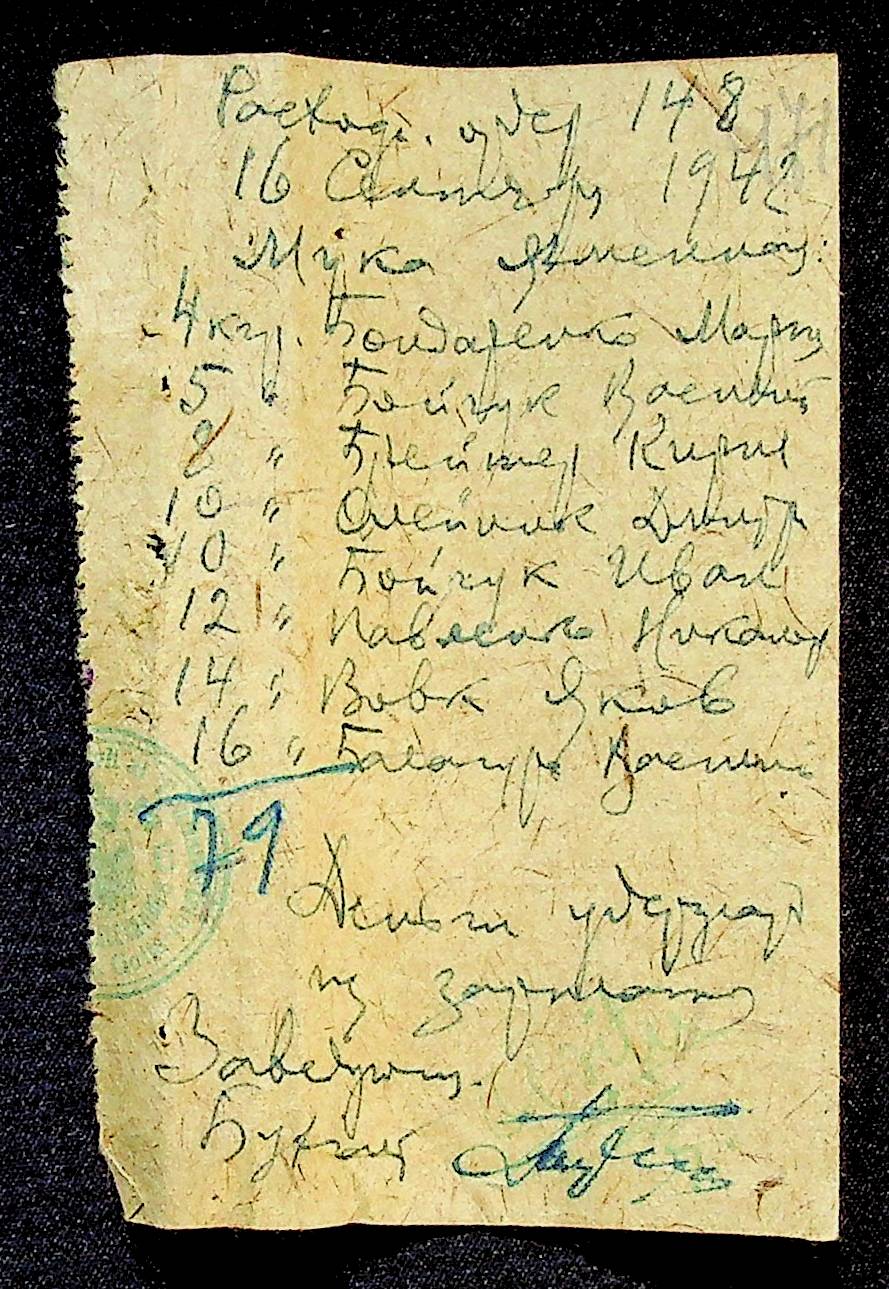 Расход. ордер 148
16 Сентября 1942
Мука Ячменная:
4 кгр. Бондаренко Мария
5 " Бойчук Василий
8 " Брейтер Кирил
10 " Олейник Дмитр
10 " Бойчук Иван
12 " Павленко Николай
14 " Вовк Яков
16 " Василий
79
Деньги удержать
из зарплаты
Заведующ.
Бухгалт